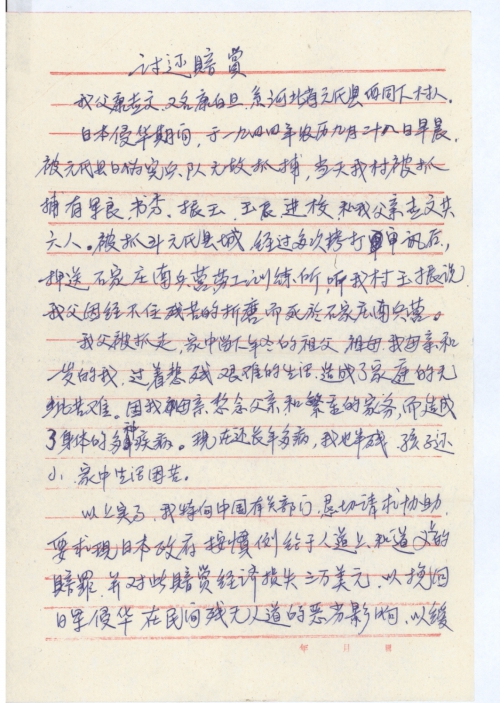 讨还赔赏
我父康志文，又名康白旦，系河北省元氏县西同下村人。
日本侵华期间，于一九四四年农历九月二十八日早晨，
被元氏县日伪宪兵队无故抓捕，当天我村被抓
捕有 书 、振玉、玉 、进校 和我父亲志文共
六人。被抓斗元氏县城，经过多次拷打审讯后，
押送石家庄南兵营劳工训练所，听我村玉振说
我父因经不住残苦的折磨而死於石家庄南兵营。
我父被抓走，家中 年 的祖父、祖母、我母亲和
岁的我，过着悲残艰难的生活，造成了家庭的无
比苦难。因我母亲想念父亲和繁重的家务，而造成
了身体的多种疾病。现在还长年多病，我也半残，孩子还
小，家中生活困苦。
以上实 ，我特向中国有关部门，恳切请求协助，
要求现日本政府按惯例给于人道上和道义上的
赔罪，并对此赔赏经济损失 万美元，以挽回
日军侵华在民间残无人道的恶劣影响，以缓
年 月 日